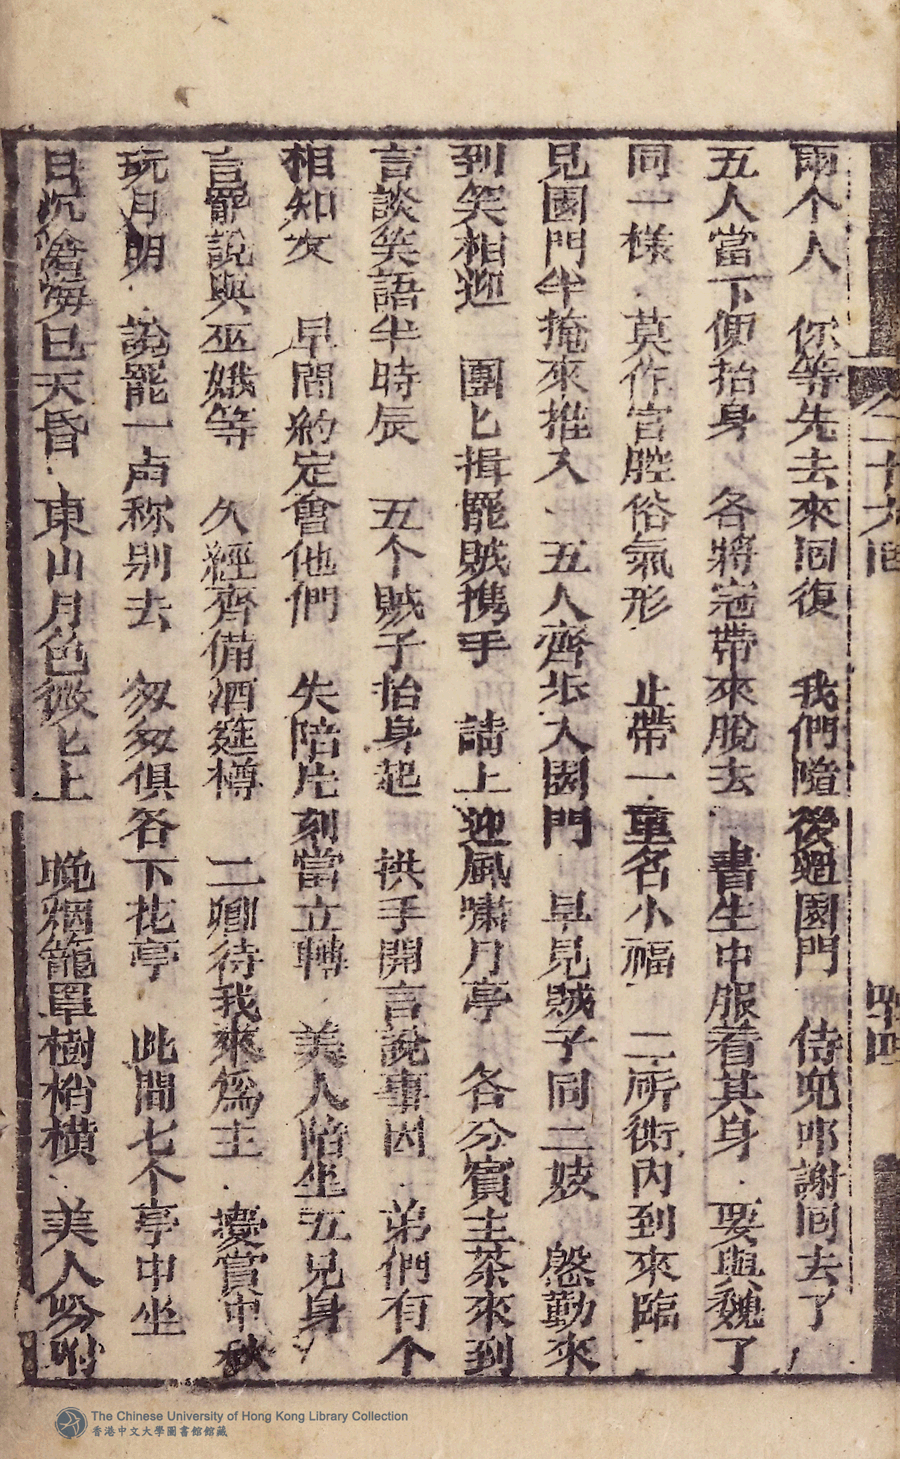 兩个人　你等先去來囘復　我們隨後廵園門　侍児叩謝囘去了
五人當下便抬身　各將冠帶來脫去　書生巾服着其身　要與魏了
同一樣　莫作官腔俗氣形　止帶一童名小福　二所衙內到來臨
見園門半掩來推入　五人齊步入園門　早見賊子同二妓　慇勤來
到笑相迎　團匕揖罷賊携手　請上迎風嘯月亭　各分賓主茶來到
言談笑語半時辰　五个賊子抬身起　拱手開言說事因　弟們有个
相知友　早間約定會他們　失陪片刻當立轉　美人陪坐五兄身
言罷說與巫娥等　久經齊備酒筵樽　二卿待我來爲主　慶賞中秋
玩月明　說罷一声称别去　匆匆俱各下花亭　此間七个亭中坐
日沉滄海已天昏　東山月色微匕上　晚烟籠罩樹梢橫　美人分咐
The Chinese University of Hong Kong Library Collection
香港中文大學圖書館館藏